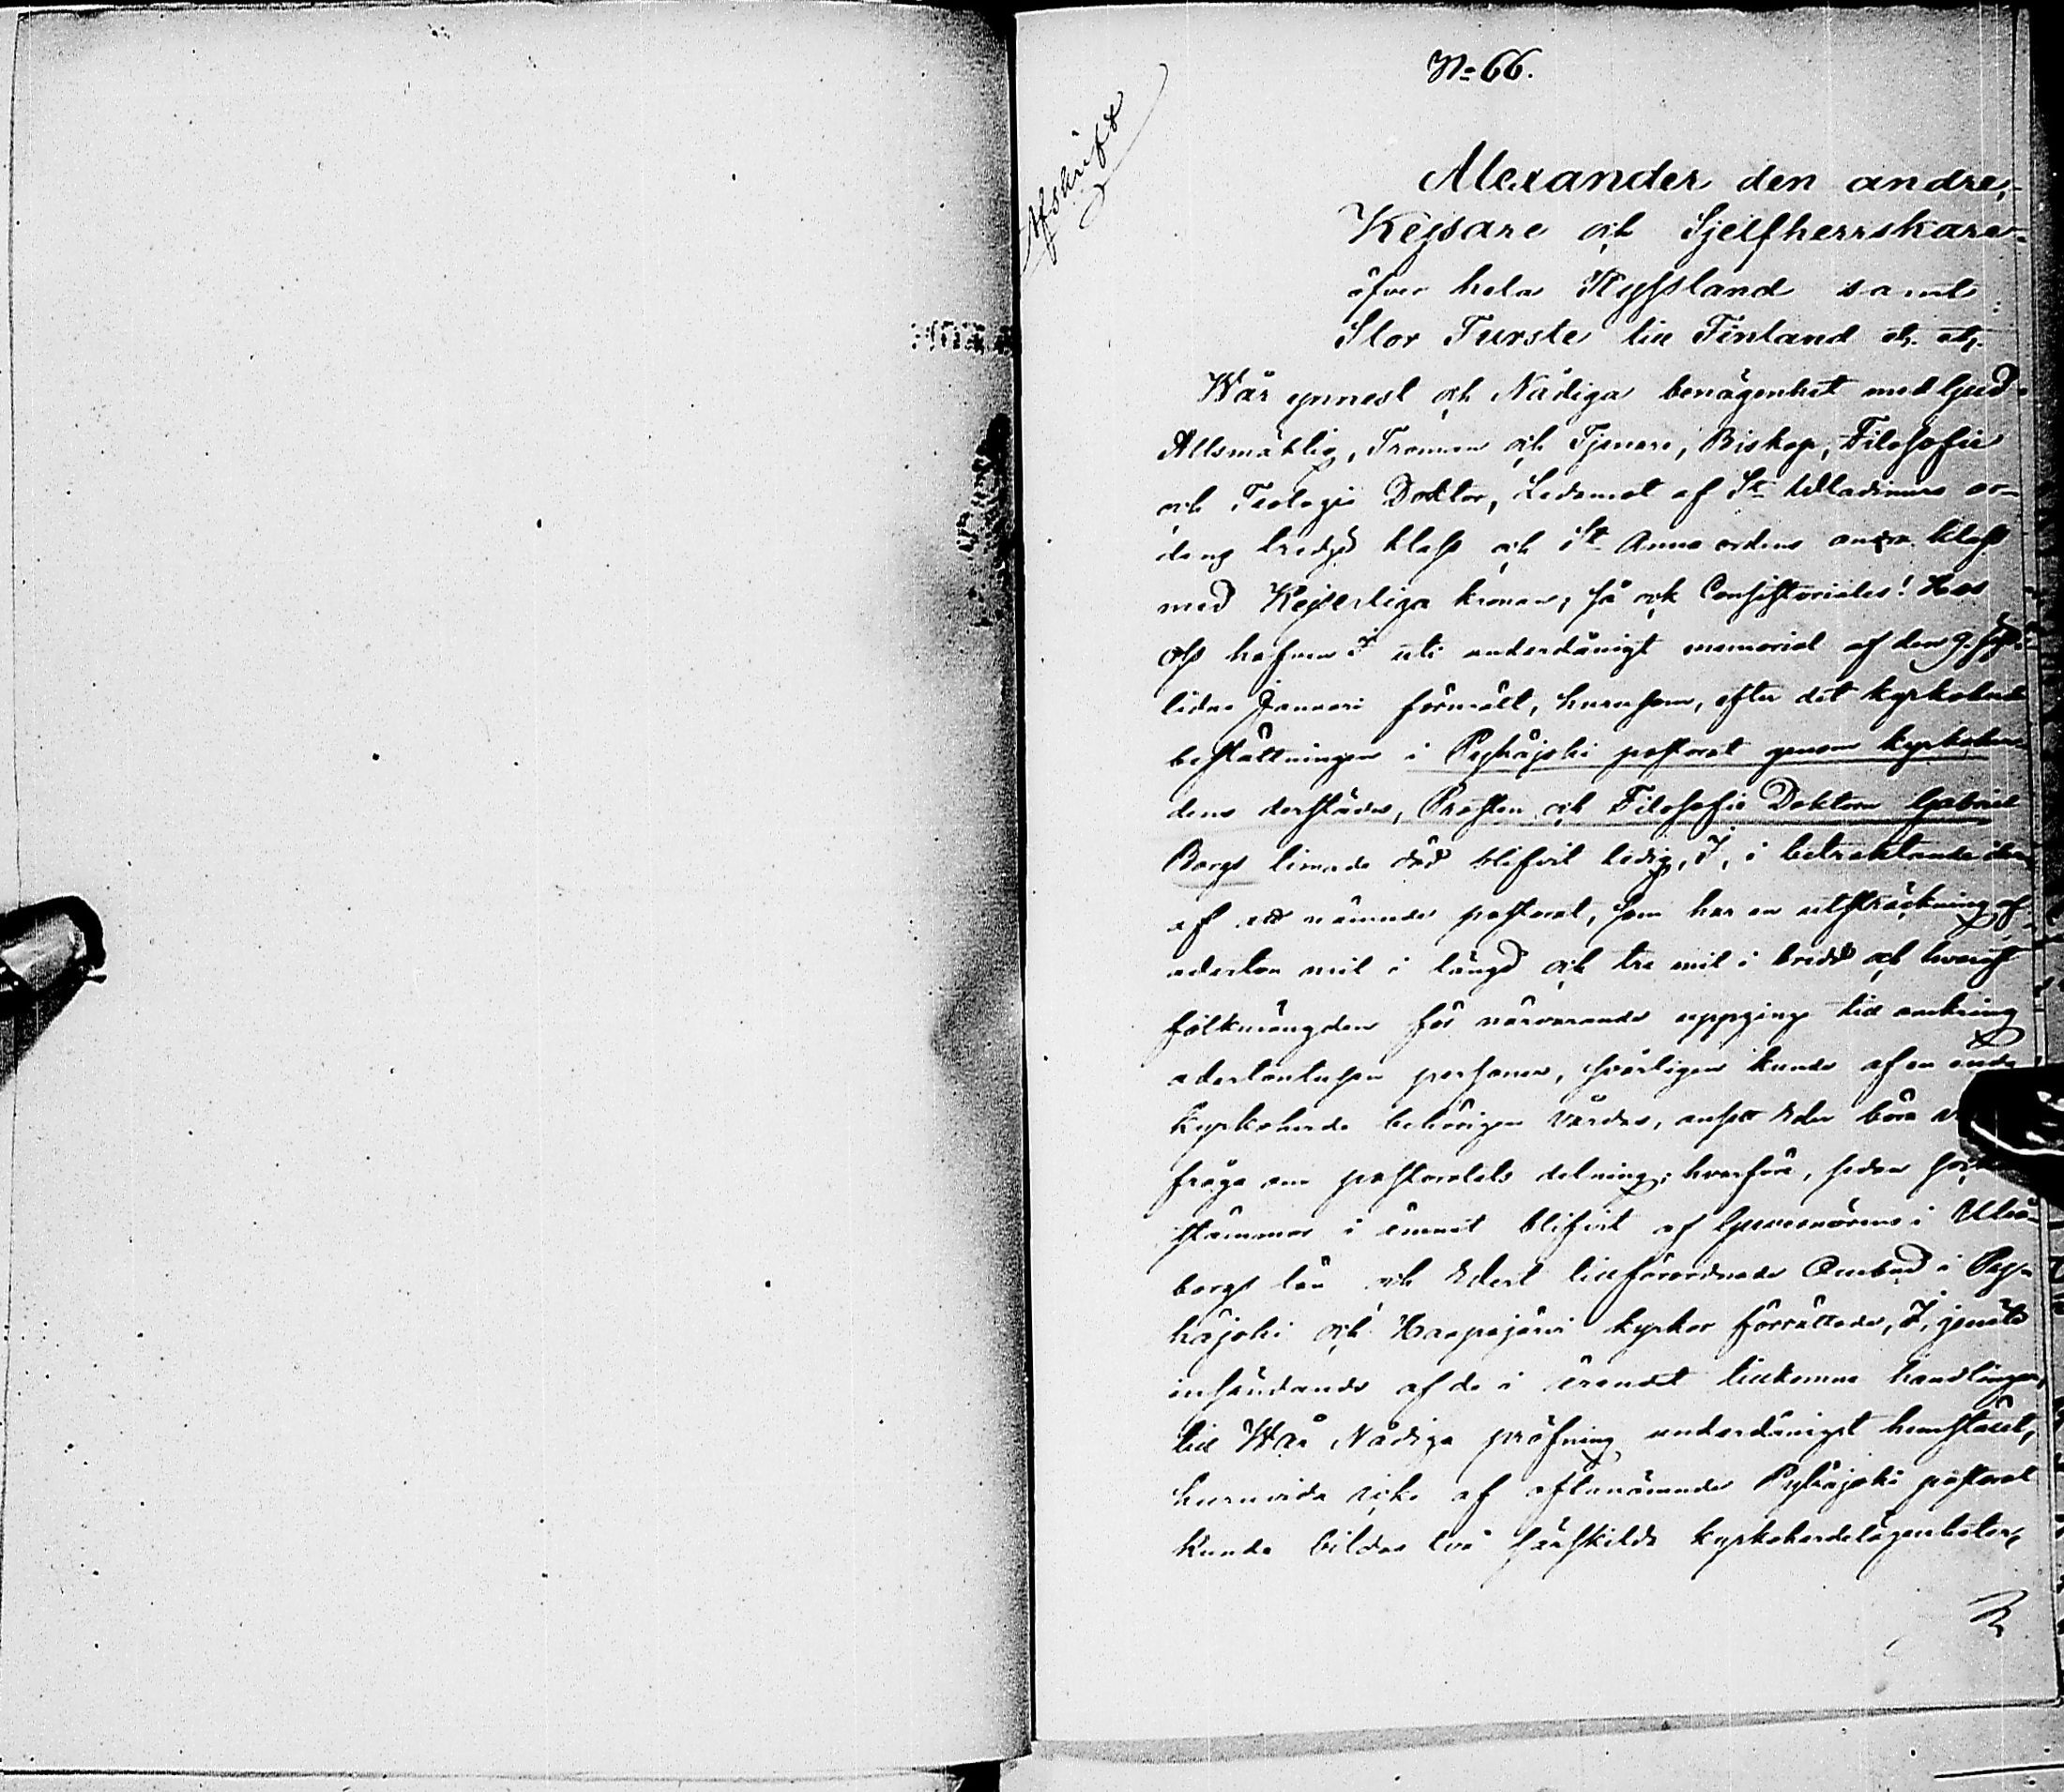 No 66.
Afskrift
Alexander den andre,
Kejsare och Sjelfherrskare
öfver hela Ryssland samt
Stor Furste till Finland etc. etc.
Wår ynnest och Nådiga benägenhet med Gud
Allsmäktig, Troman och Tjenare, Biskop, Filosofie
och Teologie Doktor, Ledamot af St Wladimirs or-
dens tredje klass och St Annæ ordens andra klass
med Kejserliga kronan, så ock Consistoriales! Hos
Oss hafven I uti underdånigt memorial af den 9. sist-
lidne Januari förmält, hurusom, efter det kyrkoherde
beställningen i Pyhäjoki pastorat genom kyrkoher-
dens derstädes, Prosten och Filosofie Doktorn Gabriel
Borgs timade död blifvit ledig, I, i betraktande der-
af att nämnde pastorat, som har en utsträckning af
aderton mil i längd och tre mil i bredd och hvars
folkmängden för närvarande uppginge till omkring
adertontusen personer, svårligen kunde af en enda
kyrkoherde behörigen vårdas, ansett Eder böra
fråga om pastoratets delning; hvarföre, sedan
stämmor i ämnet blifvit af Guvernören i Uleå-
borgs län och Edert tillförordnade Ombud i Pyhä-
häjoki och Haapajärvi kyrkor förrättade, I, genom
insändande af de i ärendet tillkomna handlingar,
till Wår Nådiga pröfning underdånigst hemställt,
huruvida icke af oftanämnde Pyhäjoki pastorat
kunde bildas två särskilda kyrkoherdelägenheter,